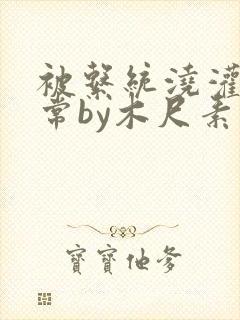 被繫統澆灌
常by木尺素
寶寶他爹